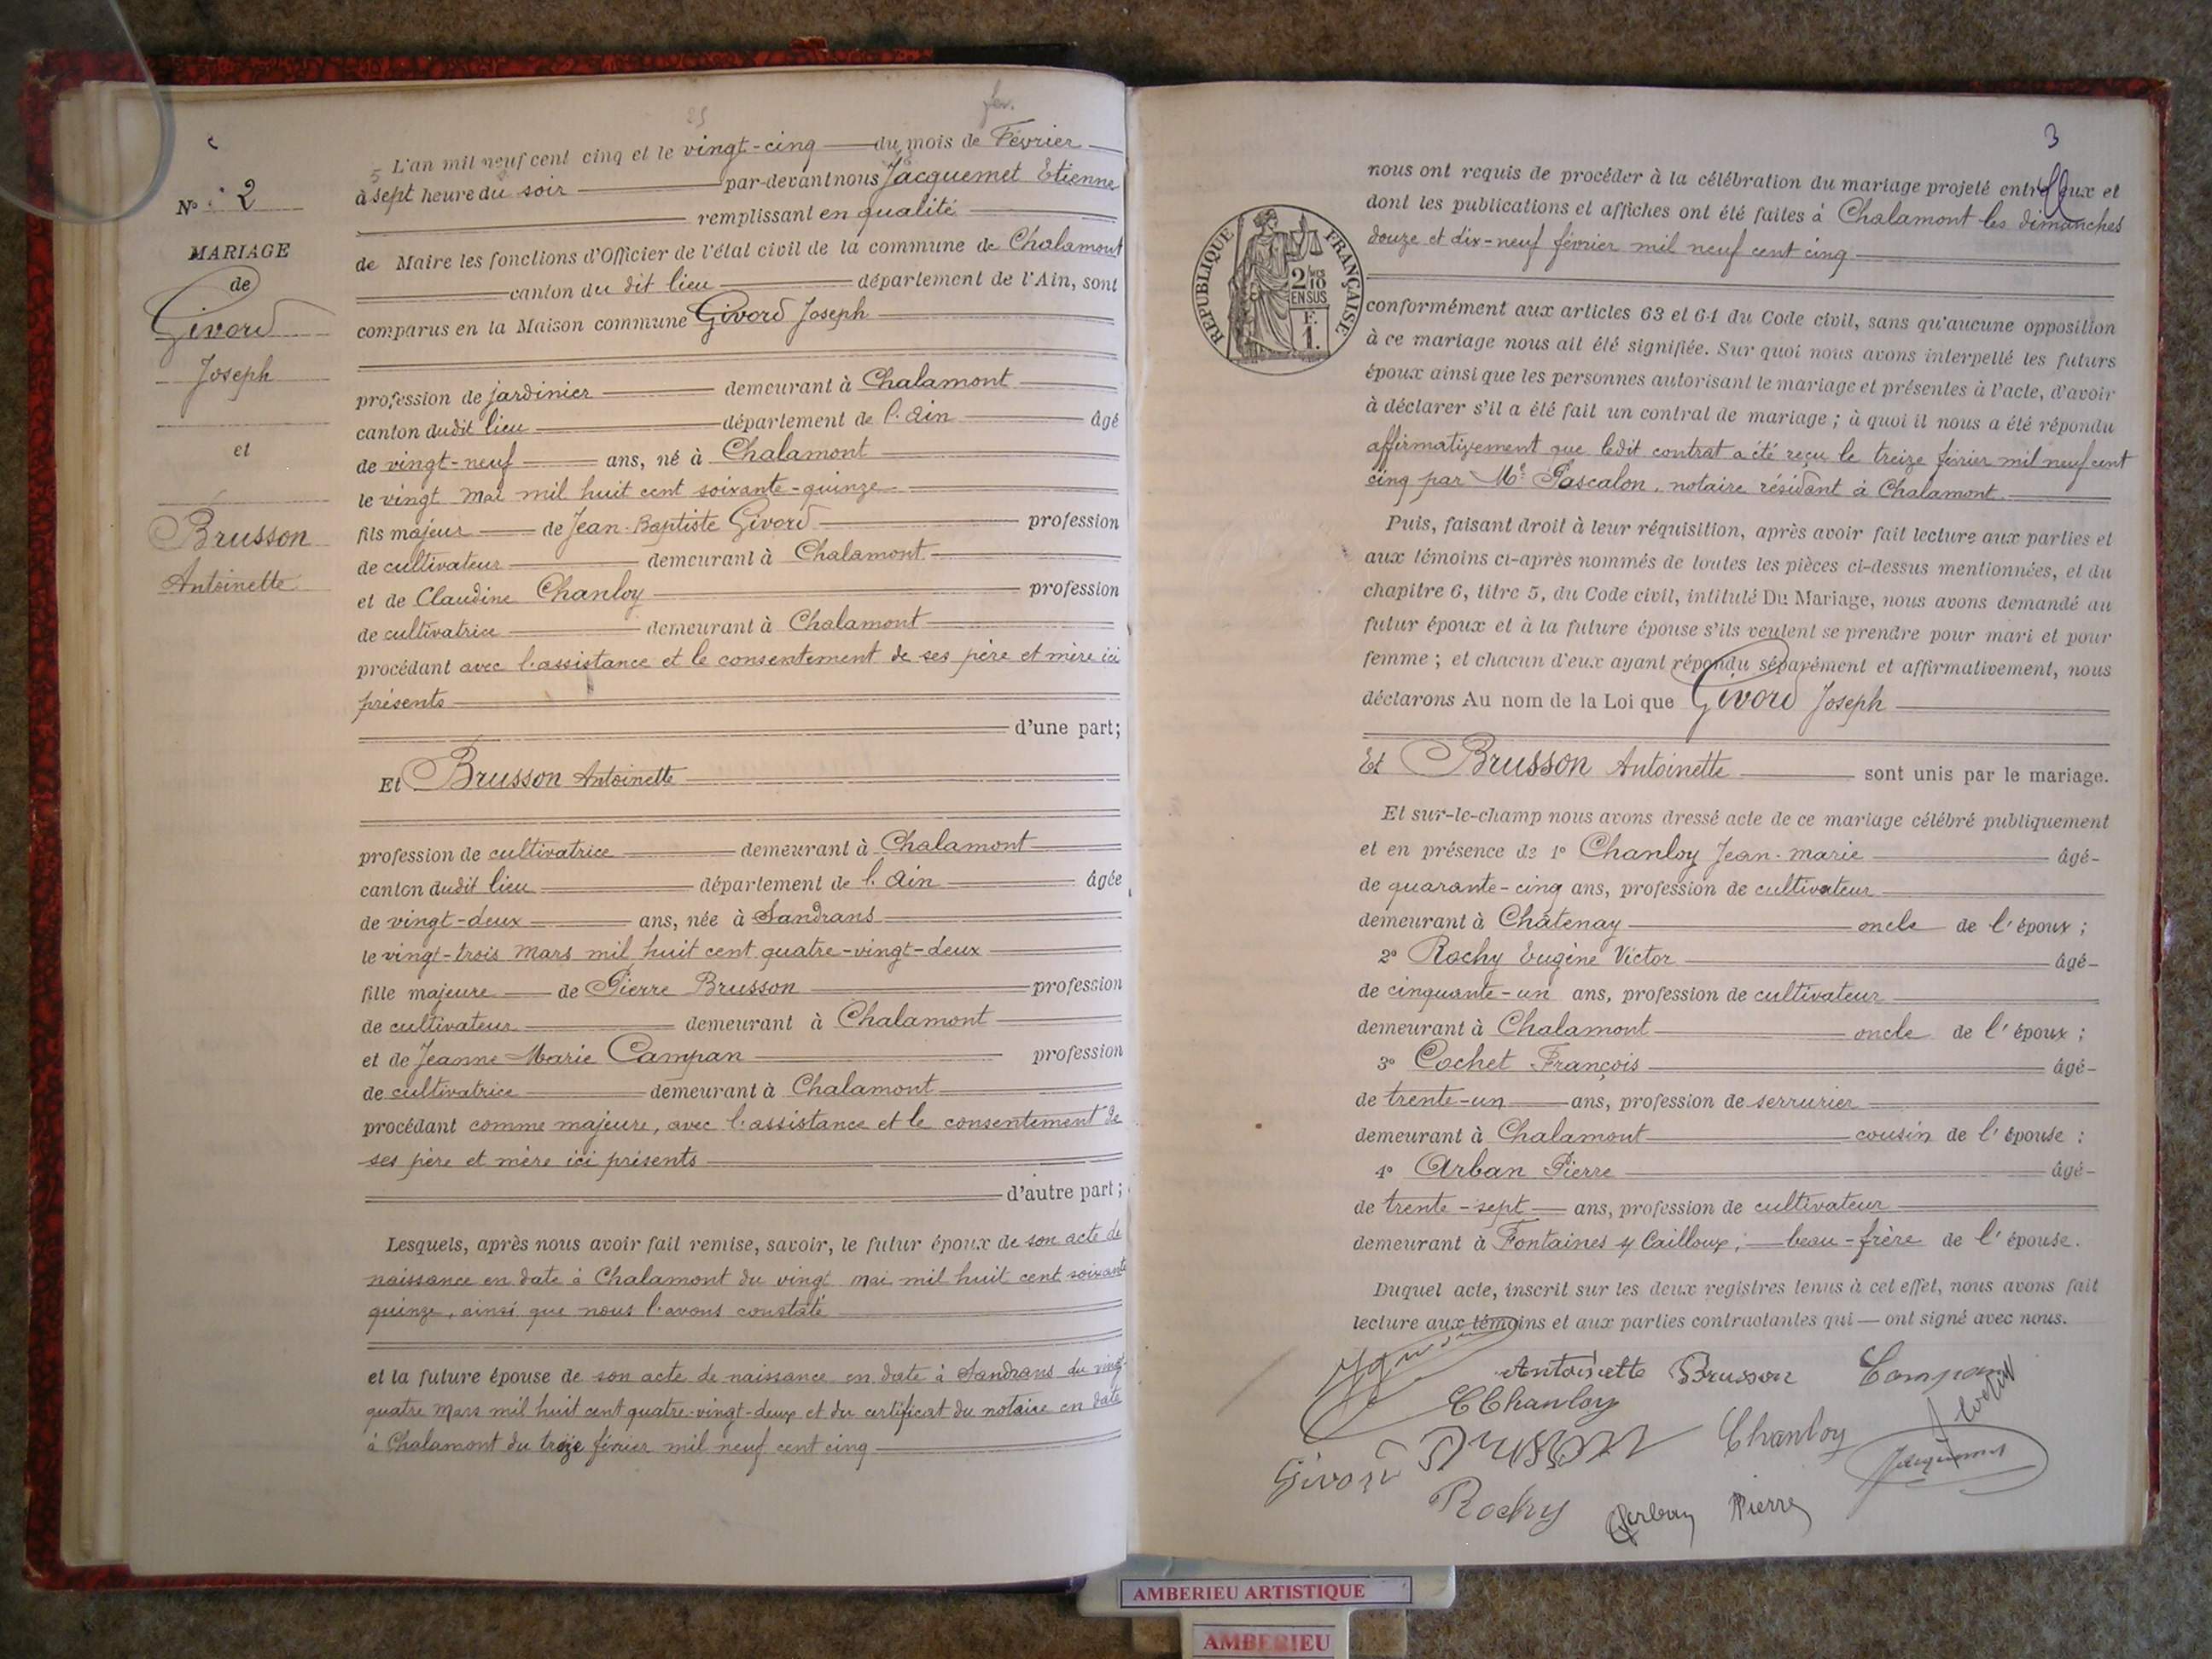 25 fev.
N° 2
MARIAGE
de
Givord
Joseph
et
Brusson
Antoinette
L'an mil neuf cent cinq et le vingt-cinq du mois de Février
à sept heure du soir par-devant nous Jacquemet Etienne
remplissant en qualité
de Maire les fonctions d'Officier de l'état civil de la commune de Chalamont
canton du dit lieu département de l'Ain, sont
comparus en la Maison commune Givord Joseph
profession de jardinier demeurant à Chalamont
canton dudit lieu département de l'Ain âgé
de vingt-neuf ans, né à Chalamont
le vingt mai mil huit cent soixante-quinze
fils majeur de Jean-Baptiste Givord profession
de cultivateur demeurant à Chalamont
et de Claudine Chanloy profession
de cultivatrice demeurant à Chalamont
procédant avec l'assistance et le consentement de ses père et mère ici
présents
d'une part;
Et Brusson Antoinette
profession de cultivatrice demeurant à Chalamont
canton dudit lieu département de l'Ain âgée
de vingt-deux ans, née à Sandrans
le vingt-trois Mars mil huit cent quatre-vingt-deux
fille majeure de Pierre Brusson profession
de cultivateur demeurant à Chalamont
et de Jeanne-Marie Campan profession
de cultivatrice demeurant à Chalamont
procédant comme majeure, avec l'assistance et le consentement de
ses père et mère ici présents
d'autre part;
Lesquels, après nous avoir fait remise, savoir, le futur époux de son acte de
naissance en date à Chalamont du vingt mai mil huit cent soixante
quinze, ainsi que nous l'avons constaté
et la future épouse de son acte de naissance en date à Sandrans du vingt-
quatre Mars mil huit cent quatre-vingt-deux et du certificat du notaire en date
à Chalamont du treize février mil neuf cent cinq
3
nous ont requis de procéder à la célébration du mariage projeté entr'eux et
dont les publications et affiches ont été faites à Chalamont les dimanches
douze et dix-neuf février mil neuf cent cinq
RÉPUBLIQUE FRANÇAISE
2/10
EN SUS
F.
1.
conformément aux articles 63 et 64 du Code civil, sans qu'aucune opposition
à ce mariage nous ait été signifiée. Sur quoi nous avons interpellé les futurs
époux ainsi que les personnes autorisant le mariage et présentes à l'acte, d'avoir
à déclarer s'il a été fait un contrat de mariage ; à quoi il nous a été répondu
affirmativement que ledit contrat a été reçu le treize février mil neuf cent
cinq par Me Pascalon, notaire résidant à Chalamont.
Puis, faisant droit à leur réquisition, après avoir fait lecture aux parties et
aux témoins ci-après nommés de toutes les pièces ci-dessus mentionnées, et du
chapitre 6, titre 5, du Code civil, intitulé Du Mariage, nous avons demandé au
futur époux et à la future épouse s'ils veulent se prendre pour mari et pour
femme ; et chacun d'eux ayant répondu séparément et affirmativement, nous
déclarons Au nom de la Loi que Givord Joseph
Et Brusson Antoinette sont unis par le mariage.
Et sur-le-champ nous avons dressé acte de ce mariage célébré publiquement
et en présence de 1° Chanloy Jean-Marie âgé
de quarante-cinq ans, profession de cultivateur
demeurant à Châtenay oncle de l'époux ;
2° Rochy Eugène Victor âgé
de cinquante-un ans, profession de cultivateur
demeurant à Chalamont oncle de l'époux ;
3° Cochet François âgé
de trente-un ans, profession de serrurier
demeurant à Chalamont cousin de l'épouse ;
4° Arban Pierre âgé
de trente-sept ans, profession de cultivateur
demeurant à Fontaines s/ Cailloux, beau-frère de l'épouse.
Duquel acte, inscrit sur les deux registres tenus à cet effet, nous avons fait
lecture aux témoins et aux parties contractantes qui ont signé avec nous.
Antoinette Brusson Campan
C Chanloy
Givord Brusson Chanloy Jacquemet
Rochy Arban Pierre
AMBERIEU ARTISTIQUE
AMBERIEU